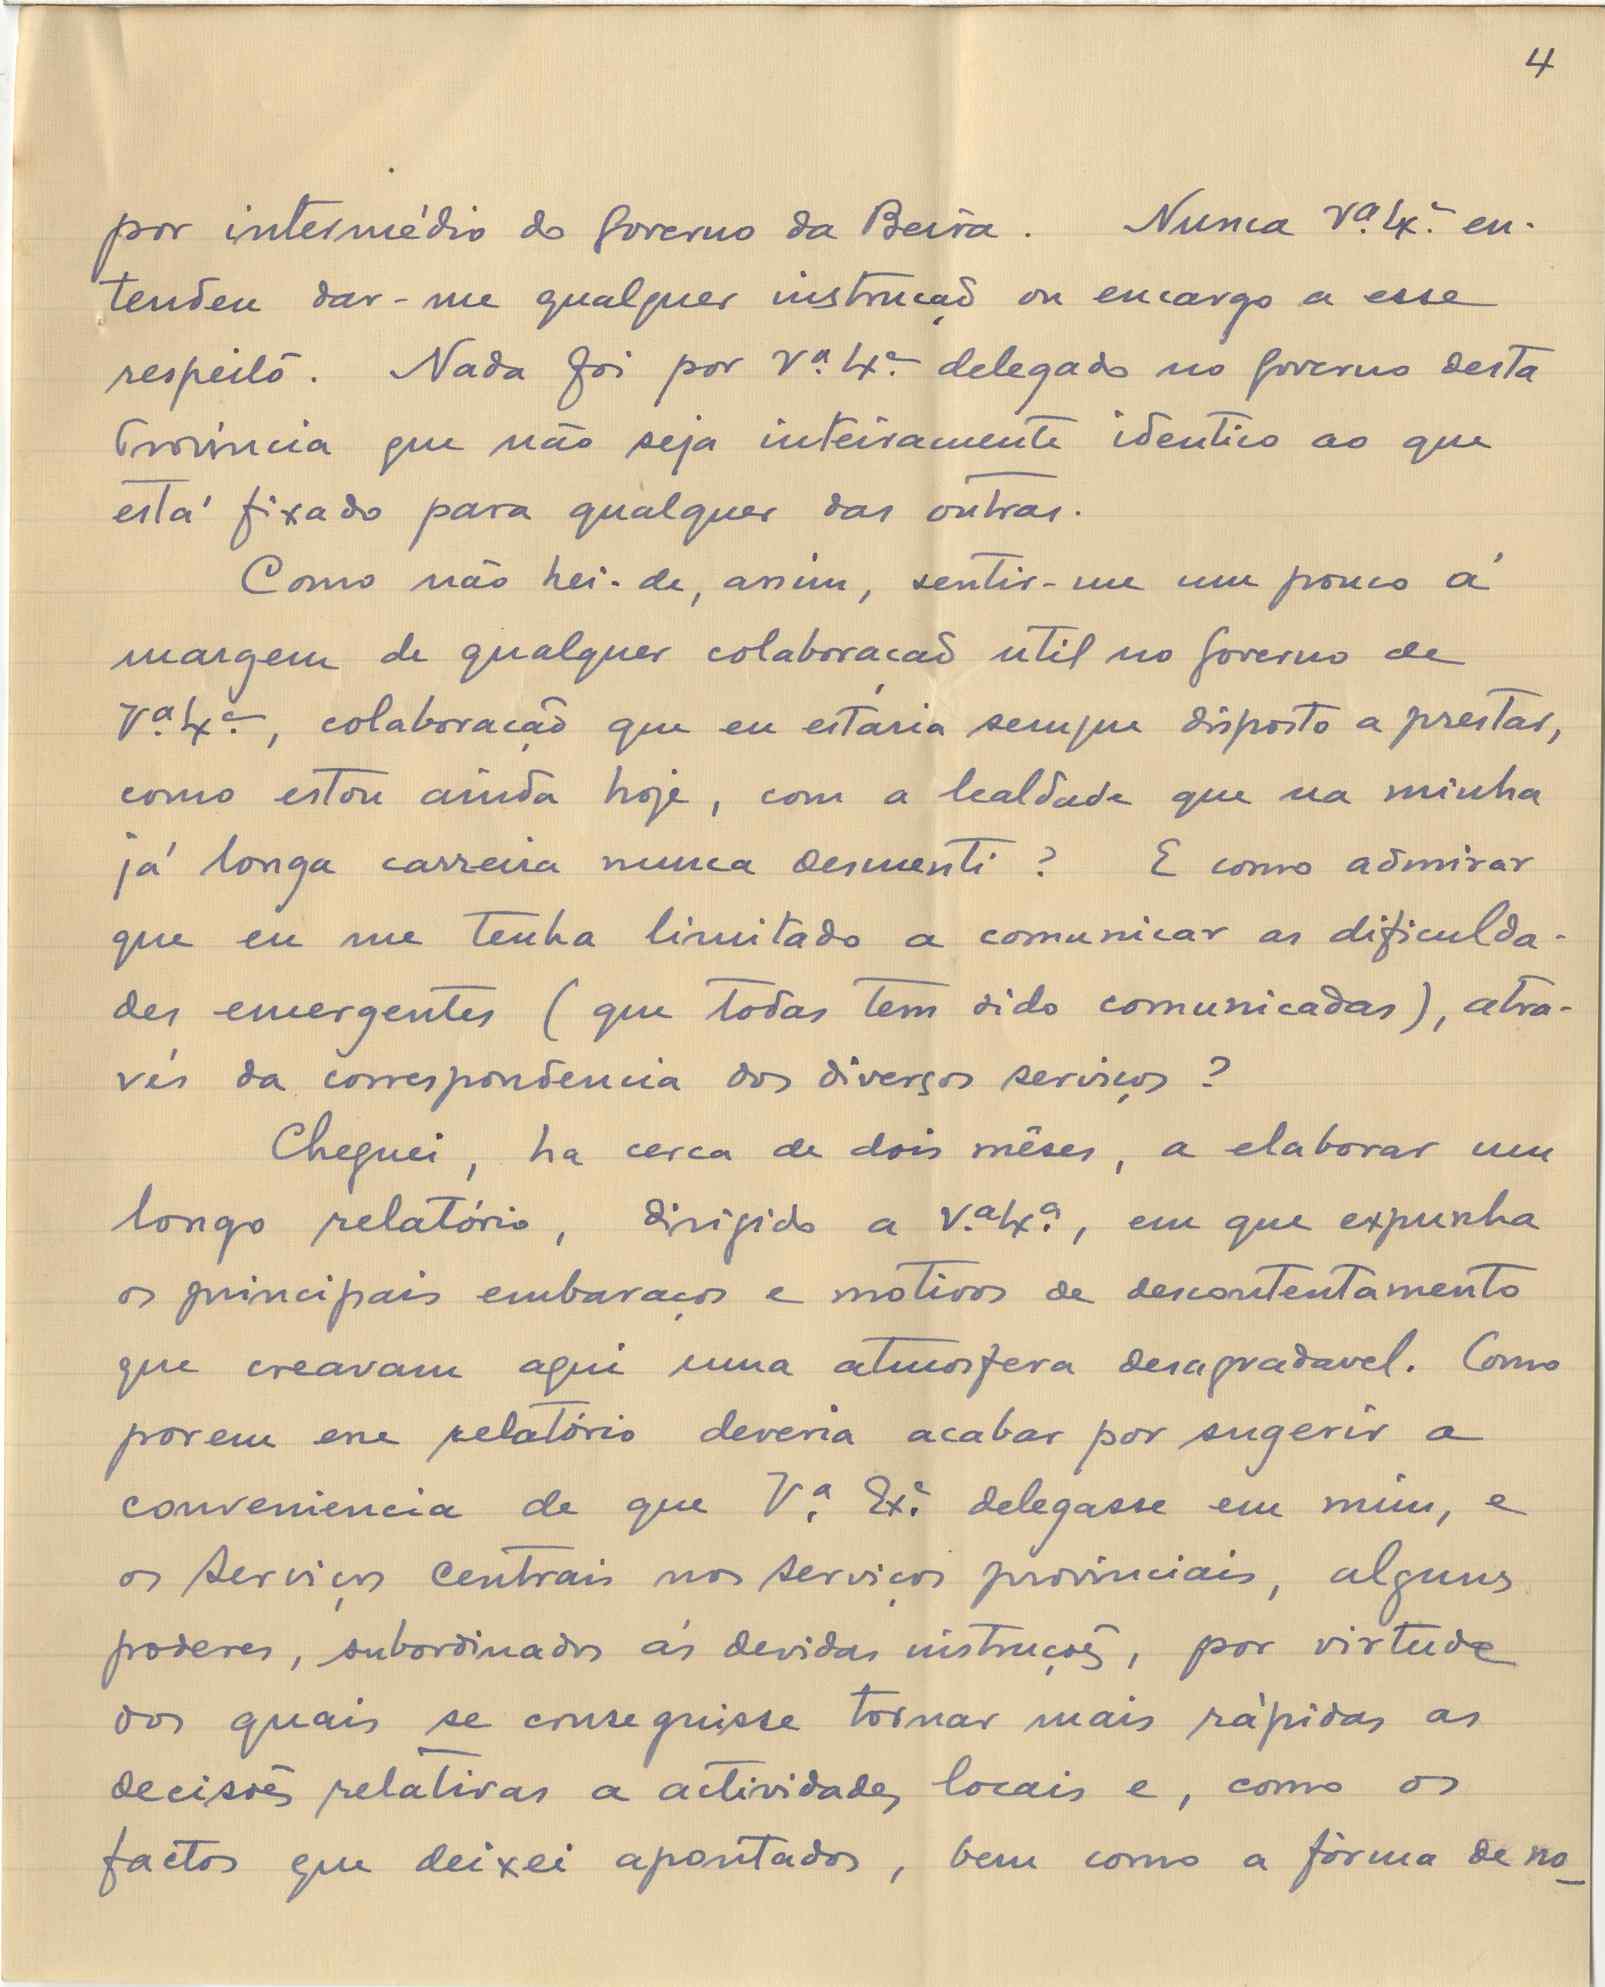 4
por intermédio do Governo da Beira. Nunca Vª. Exª. en-
tendeu dar-me qualquer instrucção ou encargo a esse
respeito. Nada foi por Vª. Exª. delegado no Governo desta
Provincia que não seja inteiramente identico ao que
está fixado para qualquer das outras.
Como não hei-de, assim, sentir-me um pouco á
margem de qualquer colaboração util no Governo de
Vª. Exª., colaboração que eu estaria sempre disposto a prestar,
como estou ainda hoje, com a lealdade que na minha
já longa carreira nunca desmenti? E como admirar
que eu me tenha limitado a comunicar as dificulda-
des emergentes (que todas tem sido comunicadas), atra-
vés da correspondencia dos diversos serviços?
Cheguei, ha cerca de dois mêses, a elaborar um
longo relatório, dirigido a V.ª Ex.ª, em que expunha
os principais embaraços e motivos de descontentamento
que creavam aqui uma atmosfera desagradavel. Como
porem esse relatório deveria acabar por sugerir a
conveniencia de que Vª. Exª. delegasse em mim, e
os serviços centrais nos serviços provinciais, alguns
poderes, subordinados ás devidas instruções, por virtude
dos quais se conseguisse tornar mais rápidas as
decisões relativas a actividades locais e, como os
factos que deixei apontados, bem como a fórma de no-